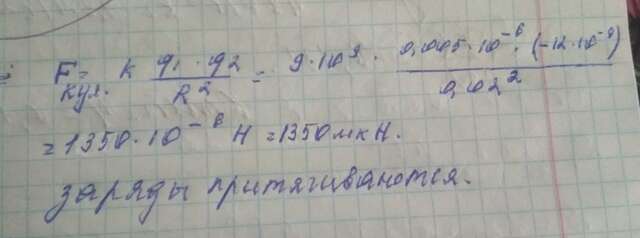 F = k q₁ · q₂ / R² = 9·10⁹ · 0,005·10⁻⁶ · (-12·10⁻⁹) / 0,02²
кул.
= 1350·10⁻⁶ Н = 1350 мкН.
заряды притягиваются.